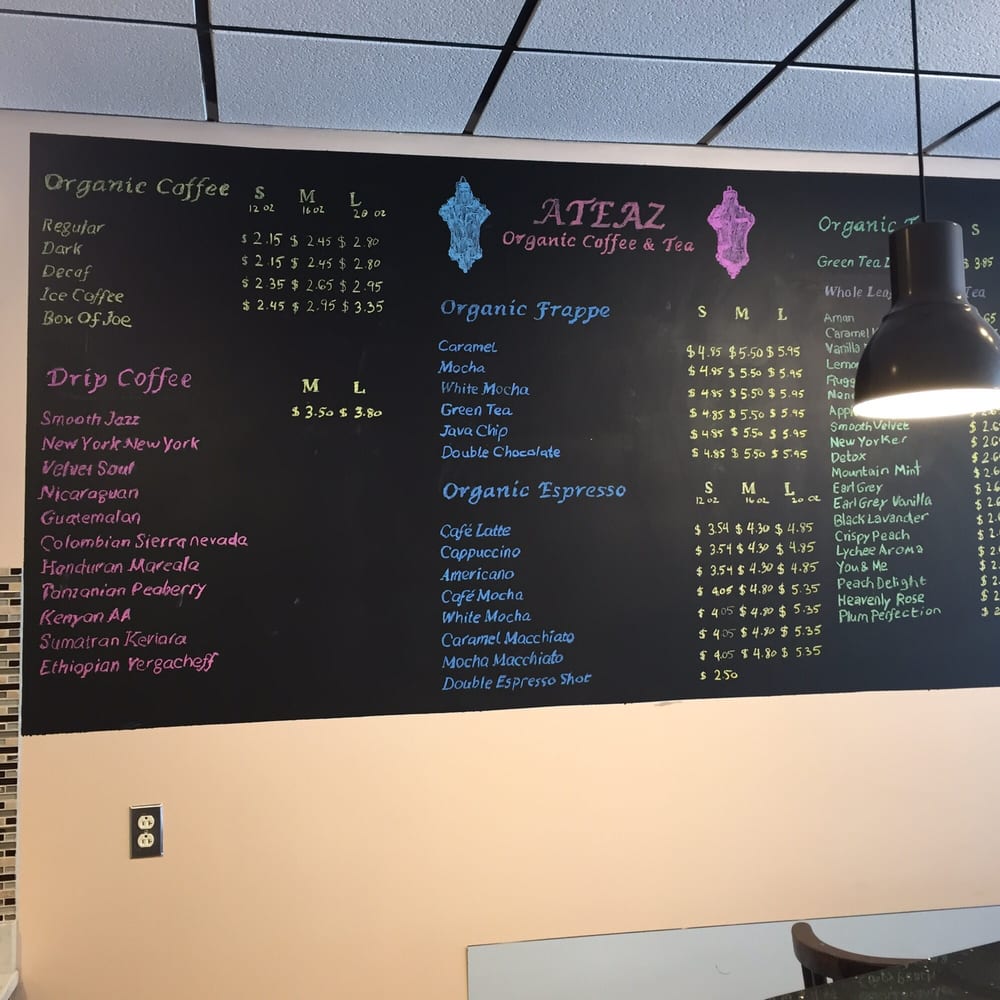 Organic Coffee S M L
12 oz 16 oz 20 oz
Regular $ 2.15 $ 2.45 $ 2.80
Dark $ 2.15 $ 2.45 $ 2.80
Decaf $ 2.35 $ 2.65 $ 2.95
Ice Coffee $ 2.45 $ 2.95 $ 3.35
Box Of Joe
Drip Coffee M L
$ 3.50 $ 3.80
Smooth Jazz
New York New York
Velvet Soul
Nicaraguan
Guatemalan
Colombian Sierra nevada
Honduran Marcala
Tanzanian Peaberry
Kenyan AA
Sumatran Keviara
Ethiopian Yergacheff
ATEAZ
Organic Coffee & Tea
Organic Frappe S M L
Caramel $ 4.85 $ 5.50 $ 5.95
Mocha $ 4.85 $ 5.50 $ 5.95
White Mocha $ 4.85 $ 5.50 $ 5.95
Green Tea $ 4.85 $ 5.50 $ 5.95
Java Chip $ 4.85 $ 5.50 $ 5.95
Double Chocolate $ 4.85 $ 5.50 $ 5.95
Organic Espresso S M L
12 oz 16 oz 20 oz
Café Latte $ 3.54 $ 4.30 $ 4.85
Cappuccino $ 3.54 $ 4.30 $ 4.85
Americano $ 3.54 $ 4.30 $ 4.85
Café Mocha $ 4.05 $ 4.80 $ 5.35
White Mocha $ 4.05 $ 4.80 $ 5.35
Caramel Macchiato $ 4.05 $ 4.80 $ 5.35
Mocha Macchiato $ 4.05 $ 4.80 $ 5.35
Double Espresso Shot $ 2.50
Organic S
Green Tea $ 3.85
Whole Tea
Aman
Caramel
Vanilla
Smooth Velvet
New Yorker
Detox
Mountain Mint
Earl Grey
Earl Grey Vanilla
Black Lavander
Crispy Peach
Lychee Aroma
You & Me
Peach Delight
Heavenly Rose
Plum Perfection